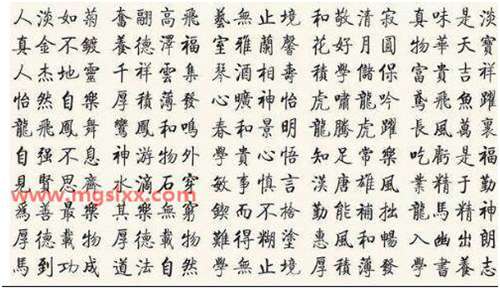 人淡如菊 奮翮高飛 藝無止境 和敬清寂 真味是淡
真金不鍍 養德澤福 室雅蘭馨 花好月圓 物華天寶
人杰地靈 千祥雲集 琴酒相壽 積學儲保 富貴吉祥
怡然自樂 厚積薄發 曠神怡 虎嘯龍吟 鳶飛魚躍
龍飛鳳舞 鸞鳳和鳴 春和景明 龍騰虎躍 長風萬裏
自强不息 神游物外 學貴心悟 知足常樂 吃虧是福
見賢思齊 水滴石穿 敏事慎言 漢唐雄風 業精于勤
www.mgsfxx.com
爲善最樂 其樂無窮 鍥而不捨 勤能補拙 龍馬精神
厚德載物 厚德載物 難得糊塗 惠風和暢 入幽出朗
馬到功成 道法自然 學無止境 厚積薄發 學書養志